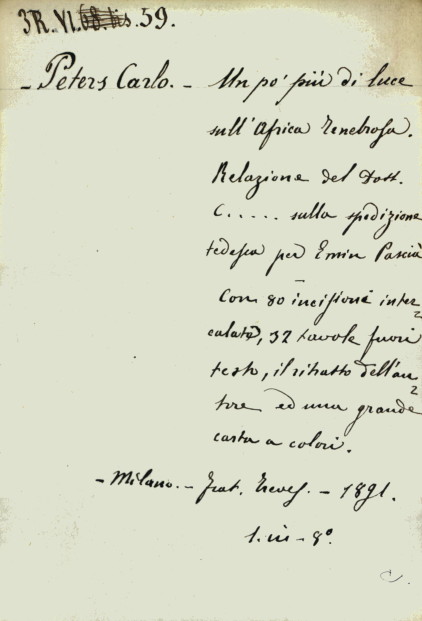 3R. VI. 68. bis. 59.
- Peters Carlo. - Un po' più di luce
sull'Africa tenebrosa.
Relazione del Dott.
C..... sulla spedizione
tedesca per Emin Pascià
Con 80 incisioni inter
calate, 32 tavole fuori
testo, il ritratto dell'au
tore ed una grande
carta a colori.
- Milano. - Frat. Treves. - 1891.
1. in - 8°.